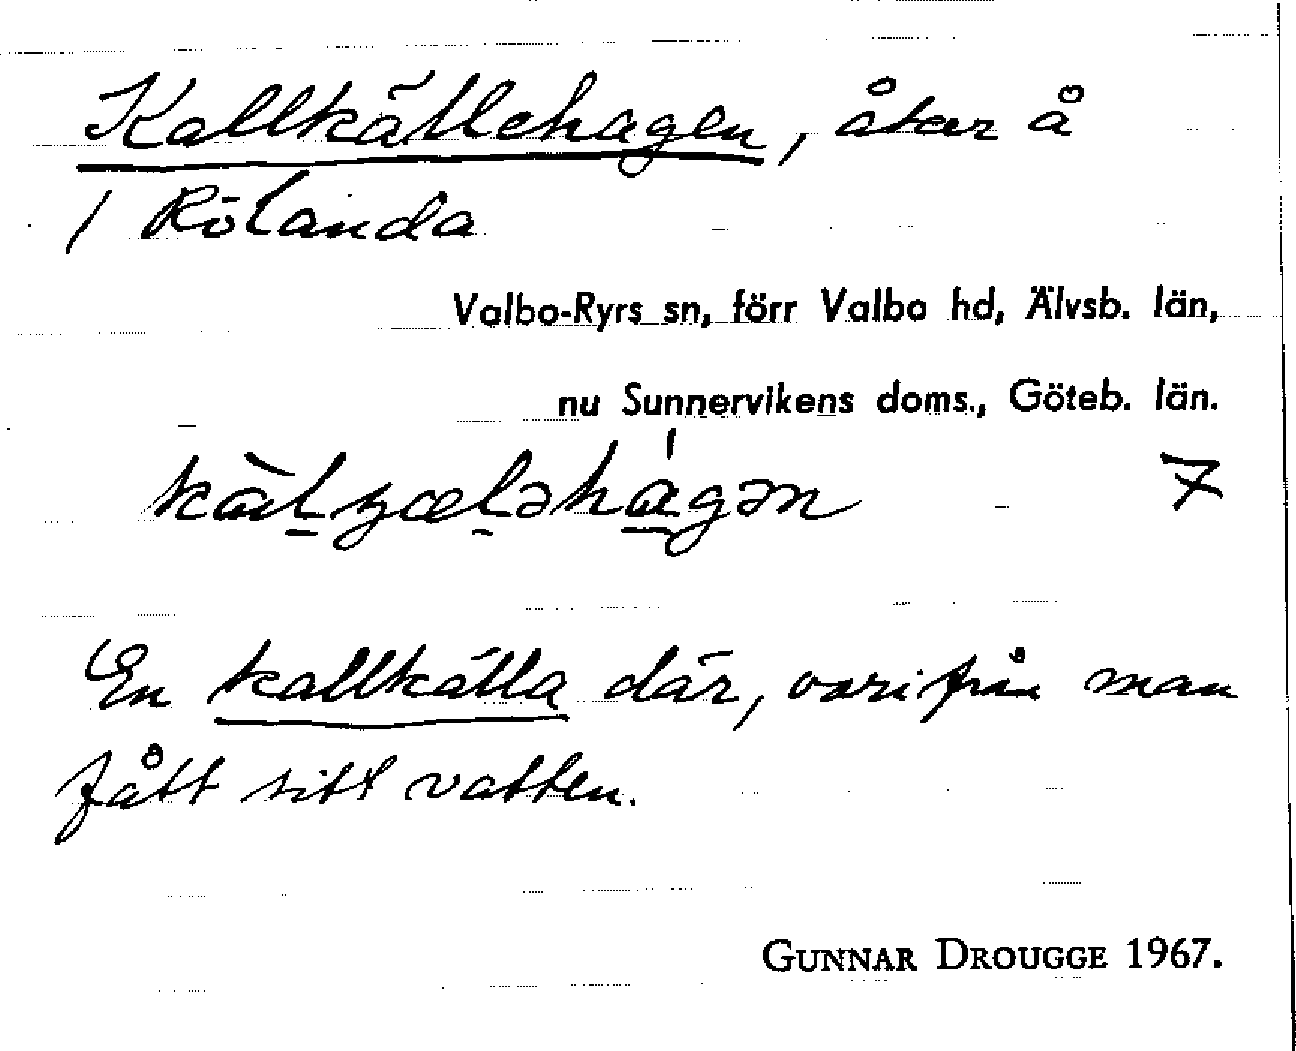 Kallkällehagen, åker å
1 Rölanda
Valbo-Ryrs sn, förr Valbo hd, Älvsb. län,
nu Sunnervikens doms., Göteb. län.
7
En kallkälla där, varifrån man
fått sitt vatten.
GUNNAR DROUGGE 1967.